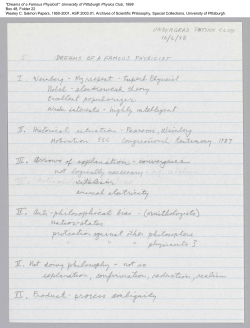 "Dreams of a Famous Physicist" University of Pittsburgh Physics Club, 1998
Box 48, Folder 22
Wesley C. Salmon Papers, 1950-2001, ASP.2003.01, Archives of Scientific Philosophy, Special Collections, University of Pittsburgh
UNDERGRAD PHYSICS CLUB
10/2/98
DREAMS OF A FAMOUS PHYSICIST
I. Weinberg - My respect - Superb Physicist
Nobel - electroweak theory
Excellent popularizer
Wide interests - highly intelligent
II. Historical situation - Weinberg
Motivation SSC congressional testimony 1987
III. Arrows of explanation - convergence
not logically necessary
vitalism
animal electricity
IV. Anti-philosophical bias - (ornithologists)
nation-states
protection against other philosophers
physicists
V. Not doing philosophy - not so
explanation, confirmation, reduction, realism
VI. Product-process ambiguity